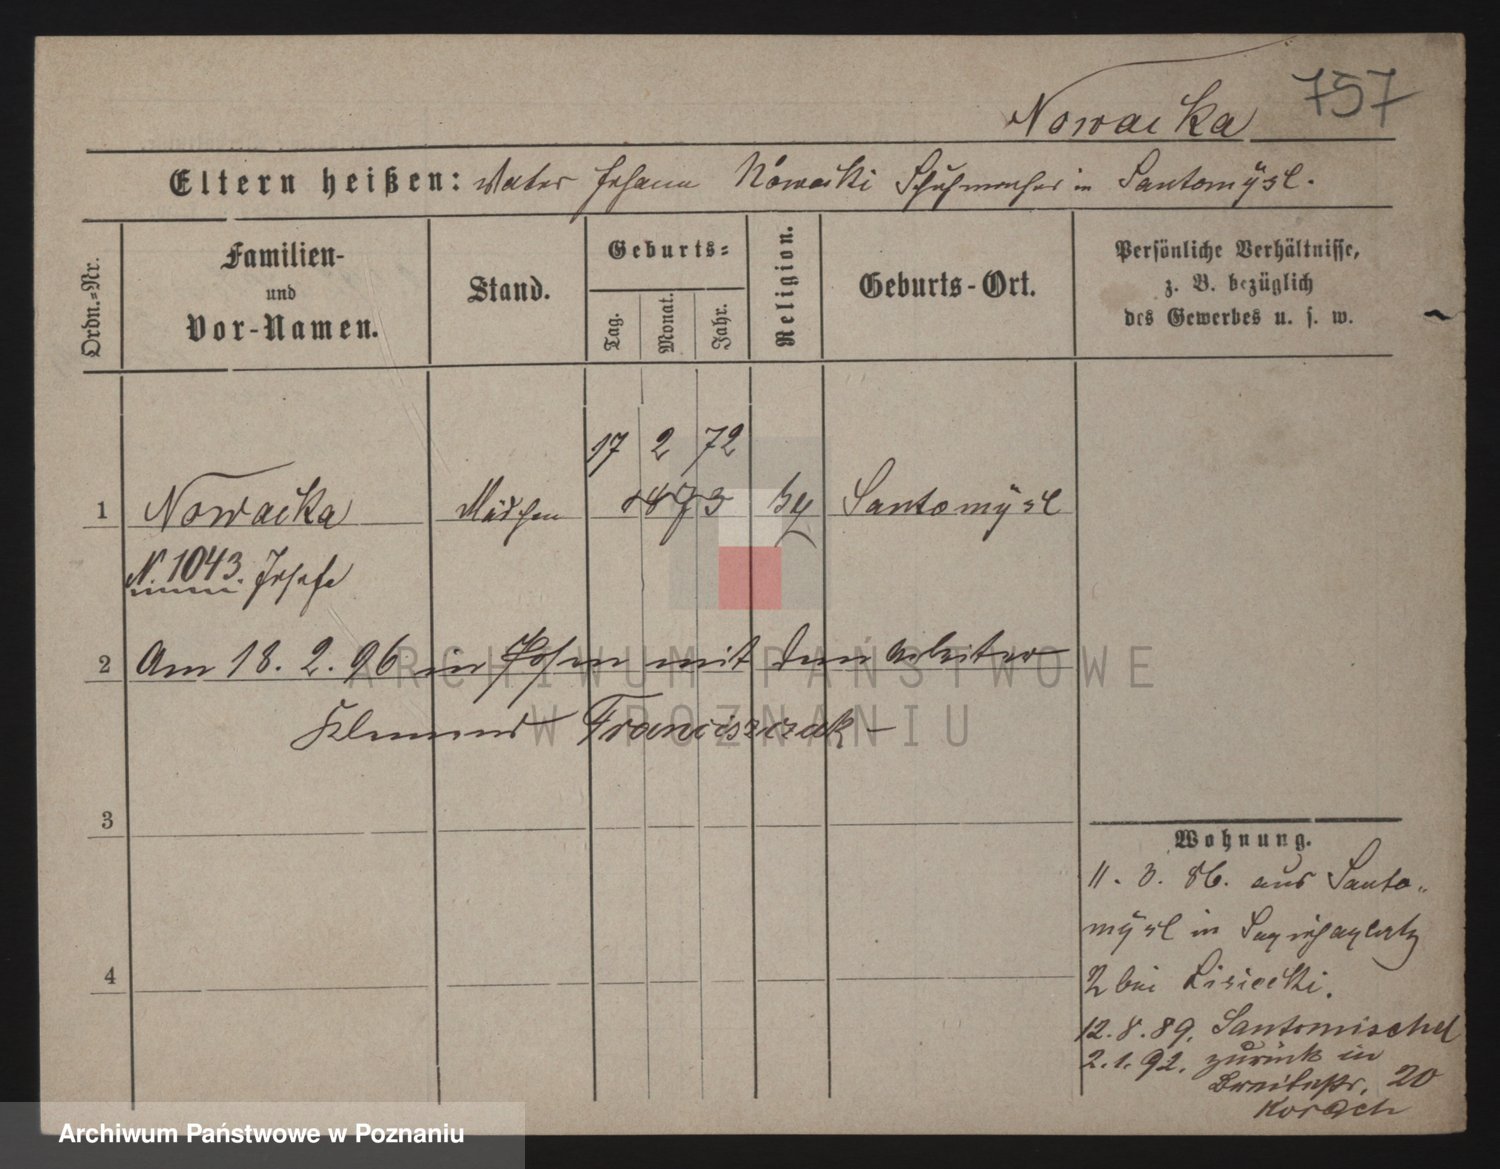 757
Nowacka
Eltern heißen: Vater Johann Nowacki Schuhmacher in Santomyśl.
Ordn.=Nr.
Familien-
und
Vor-Namen.
Stand.
Geburts=
Tag.
Monat.
Jahr.
Religion.
Geburts-Ort.
Persönliche Verhältnisse,
z. B. bezüglich
des Gewerbes u. s. w.
17 2 72
1 Nowacka Mädchen 1873 Santomysl
N. 1043. Josefa
2 Am 18. 2. 96 in Posen mit dem Arbeiter
Klemens Franciszczak
3
4
Wohnung.
11. 3. 86. aus Santo-
mysl in Sapiehaplatz
2 bei Lisiecki.
12. 8. 89. Santomischel
2. 1. 92. zurück in
Breitestr. 20
Korach
ARCHIWUM PAŃSTWOWE
W POZNANIU
Archiwum Państwowe w Poznaniu